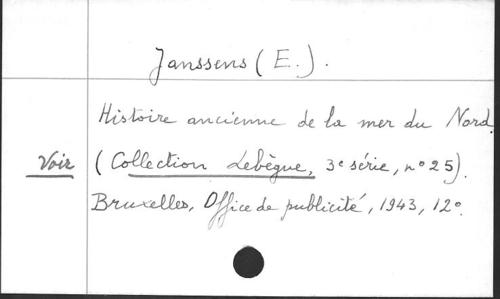 Janssens (E.).
Histoire ancienne de la mer du Nord.
Voir (Collection Lebègue, 3e série, n° 25).
Bruxelles, Office de publicité, 1943, 12°.